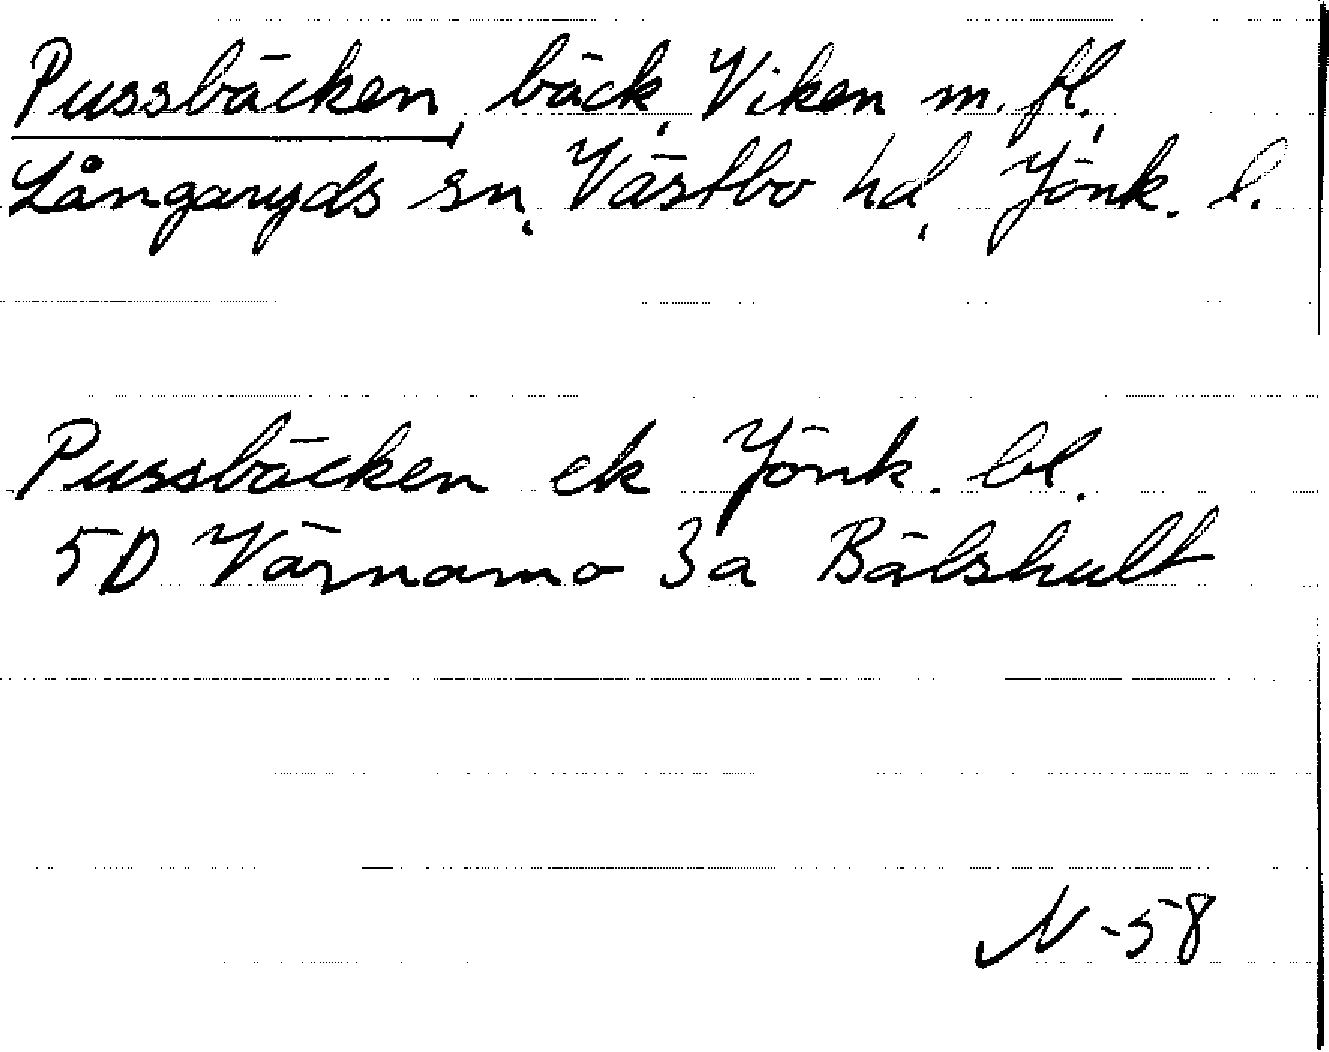 Pussbäcken, bäck, Viken m. fl.,
Långaryds sn, Västbo hd, Jönk. l.
Pussbäcken ek Jönk. bl.
5D Värnamo 3a Bälshult
N -58